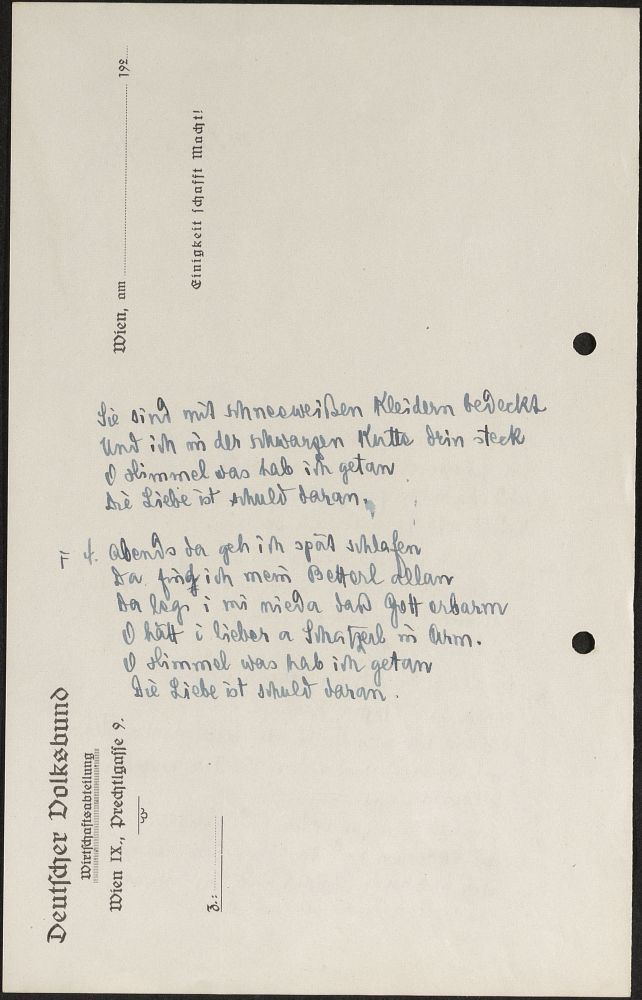 Deutscher Volksbund
Wirtschaftsabteilung
Wien IX., Prechtlgasse 9.
Z.:
Wien, am 192
Einigkeit schafft Macht!
Sie sind mit schneeweißen Kleidern bedeckt
Und ich in der schwarzen Kutte drin steck
O Himmel was hab ich getan
Die Liebe ist schuld daran.
F 4. Abends da geh ich spät schlafen
Da find ich mein Betterl allan
Da leg i mi nieda daß Gott erbarm
O hätt i lieber a Schatzerl in Arm.
O Himmel was hab ich getan
Die Liebe ist schuld daran.